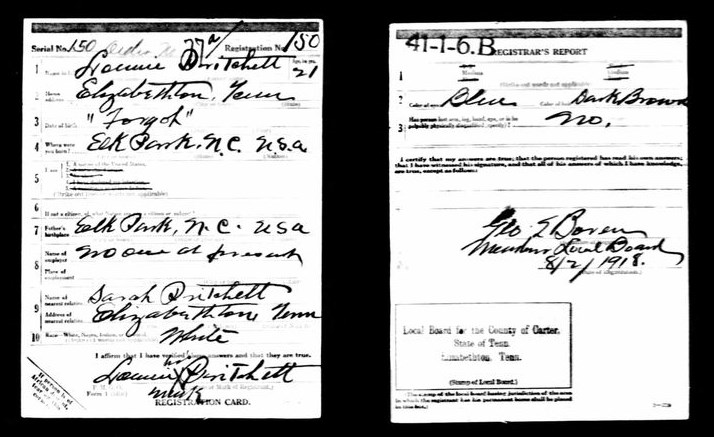 Serial No. 150 Registration No. 150
37
1 Lonnie Pritchett 21
2 Home address Elizabethton, Tenn
3 Date of birth "Forgot"
4 Where were you born? Elk Park, N.C. U.S.a
5 I am
6
7 Father's birthplace Elk Park, N.C. USa
8 Name of employer No one at present
Place of employment
9 Name of nearest relative Sarah Pritchett
Address of nearest relative Elizabethton Tenn
10 Race White
I affirm that I have verified above answers and that they are true.
his
Lonnie X Pritchett
mark
REGISTRATION CARD.
41-1-6. B REGISTRAR'S REPORT
1 Medium Medium
2 Color of eyes Blue Color of hair Dark Brown
3 Has person lost arm, leg, hand, eye, or is he palpably physically disqualified, specify? No.
I certify that my answers are true; that the person registered has read his own answers;
that I have witnessed his signature, and that all of his answers of which I have knowledge,
are true, except as follows:
Geo E Boren
Member Local Board
8/2/1918.
Local Board for the County of Carter.
State of Tenn.
Elizabethton, Tenn.
(Stamp of Local Board.)
The stamp of the local board having jurisdiction of the area
in which the registrant has his permanent home shall be placed
in this box.